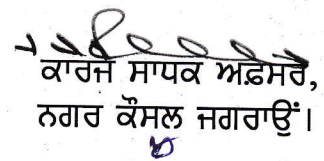 ਕਾਰਜ ਸਾਧਕ ਅਫ਼ਸਰ,
ਨਗਰ ਕੌਂਸਲ ਜਗਰਾਉਂ।